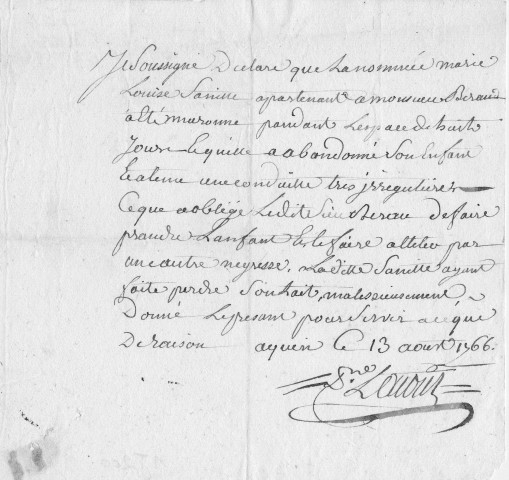 Je Soussigné Declare que La nommée marie
Louise Sanitte apartenante a monsieur Beraud
a été maronne pandant Lespace de huit
Jours Lequelle a abandonné Son Enfant
Et a tenu une conduitte tres jrreguliere
Ce que a obligé Ledit Sieur Berau de faire
prandre Lanfant Et le faire alleter par
une autre negresse. Laditte Sanitte ayant
faite perdre Son Lait malissieusement,
Donné Le presant pour Servir a ce que
De raison aquin Ce 13 aoust 1766.